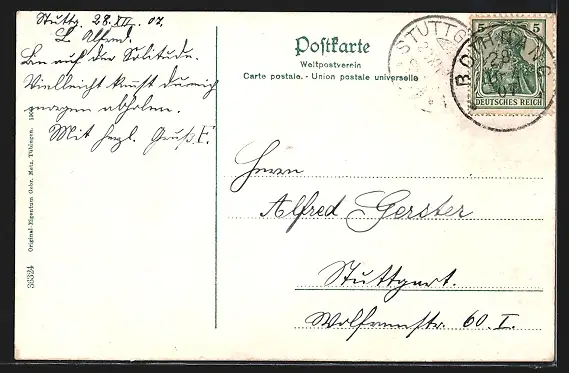 Stuttg. 28.XII.07.
L. Alfred.
Bin auf der Solitude.
Vielleicht kannst du mich
morgen abholen.
Mit herzl. Gruß. E.
Postkarte
Weltpostverein
Carte postale. - Union postale universelle
STUTTG
5 5
DEUTSCHES REICH
28
07
Herrn
Alfred Gerster
Stuttgart.
Wolframstr. 60. I.
Original-Eigentum Gebr. Metz, Tübingen.
36324